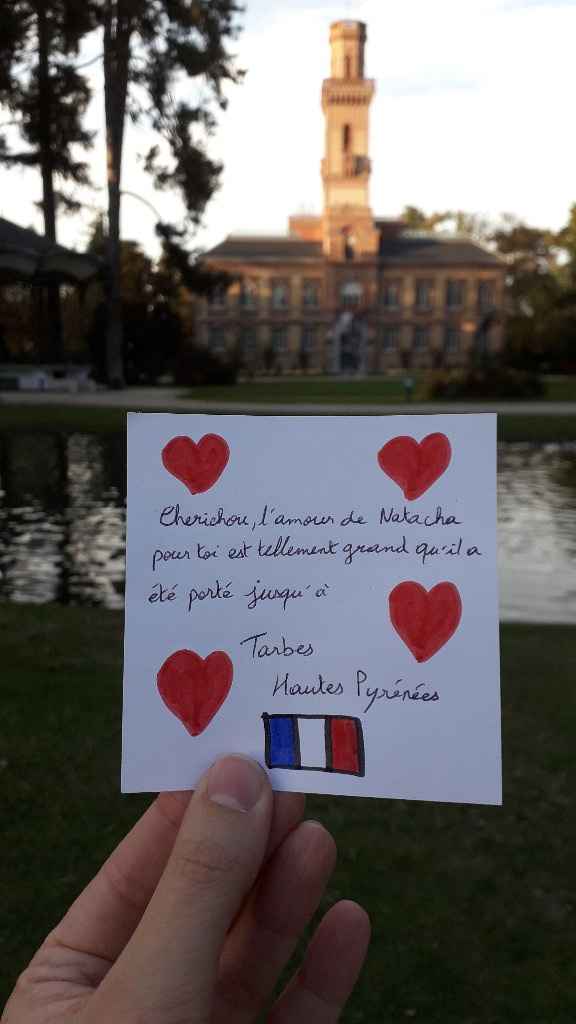 Cherichou, l'amour de Natacha
pour toi est tellement grand qu'il a
été porté jusqu'à
Tarbes
Hautes Pyrénées